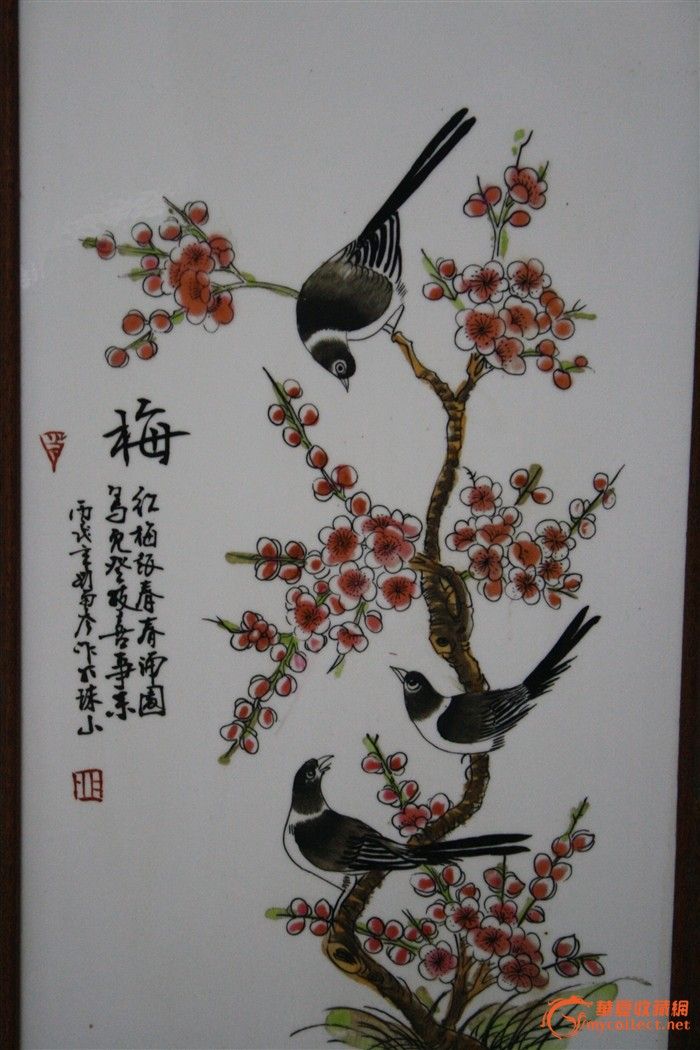 梅
红梅报春春满园
鸟儿登枝喜事来
丙戌年作于珠山
華夏收藏網
mycollect.net